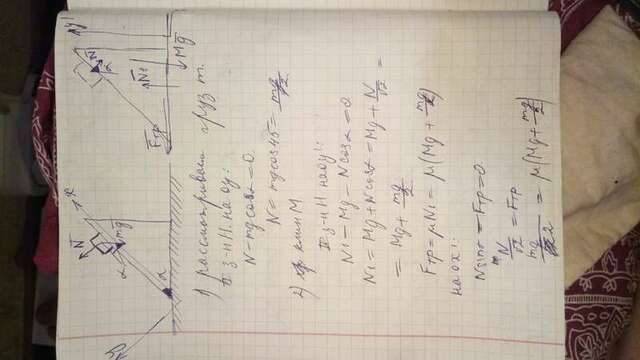 1) рассмотрим груз m.
II з-н Н. на оу:
N - mg cosα = 0.
N = mg cos 45 = mg/√2
2) клин М
II з-н Н на оу:
N₁ - Mg - N cosα = 0.
N₁ = Mg + N cosα = Mg + N/√2 =
= Mg + mg/2
Fтр = μN₁ = μ(Mg + mg/2)
на ох:
N sinα - Fтр = 0.
N/√2 = Fтр
mg/2 = μ(Mg + mg/2)
N
mg
α
α
x
y
N
N₁
Mg
Fтр